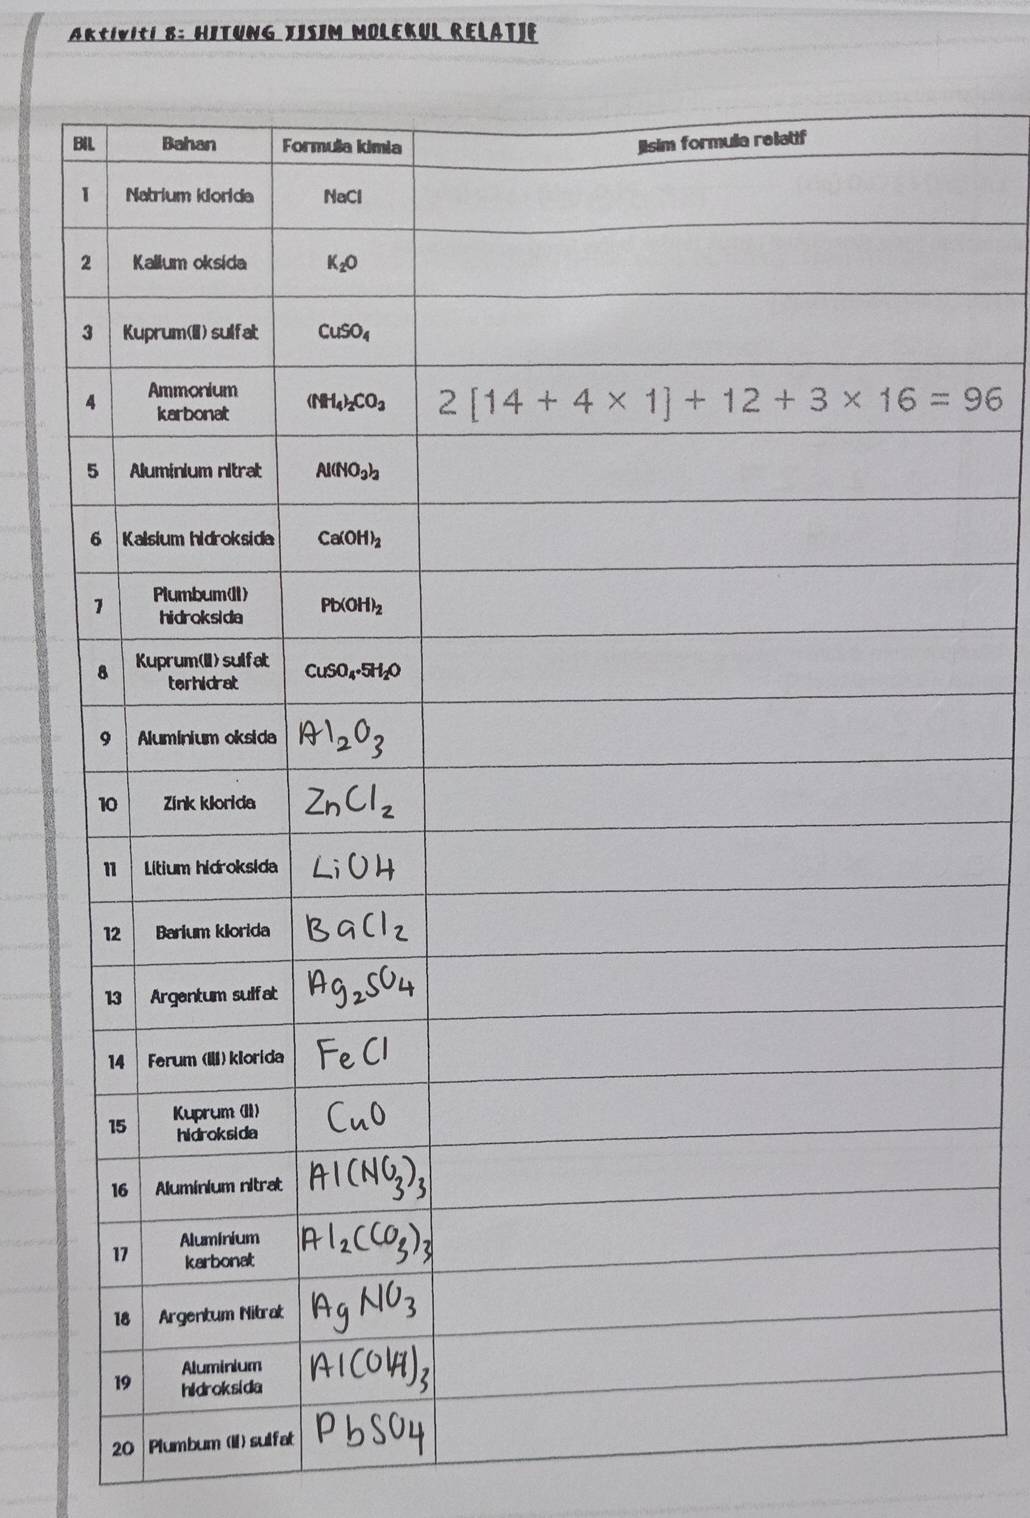 Aktiviti 8: HITUNG JISIM MOLEKUL RELATIF
BIL Bahan Formula kimia Jisim formula relatif
1 Natrium klorida NaCl
2 Kalium oksida K₂O
3 Kuprum(II) sulfat CuSO₄
4 Ammonium karbonat (NH₄)₂CO₃ 2 [14 + 4 × 1] + 12 + 3 × 16 = 96
5 Aluminium nitrat Al(NO₃)₃
6 Kalsium hidroksida Ca(OH)₂
7 Plumbum(II) hidroksida Pb(OH)₂
8 Kuprum(II) sulfat terhidrat CuSO₄•5H₂O
9 Aluminium oksida Al₂O₃
10 Zink klorida ZnCl₂
11 Litium hidroksida LiOH
12 Barium klorida BaCl₂
13 Argentum sulfat Ag₂SO₄
14 Ferum (III) klorida FeCl
15 Kuprum (II) hidroksida CuO
16 Aluminium nitrat Al(NO₃)₃
17 Aluminium karbonat Al₂(CO₃)₃
18 Argentum Nitrat AgNO₃
19 Aluminium hidroksida Al(OH)₃
20 Plumbum (II) sulfat PbSO4